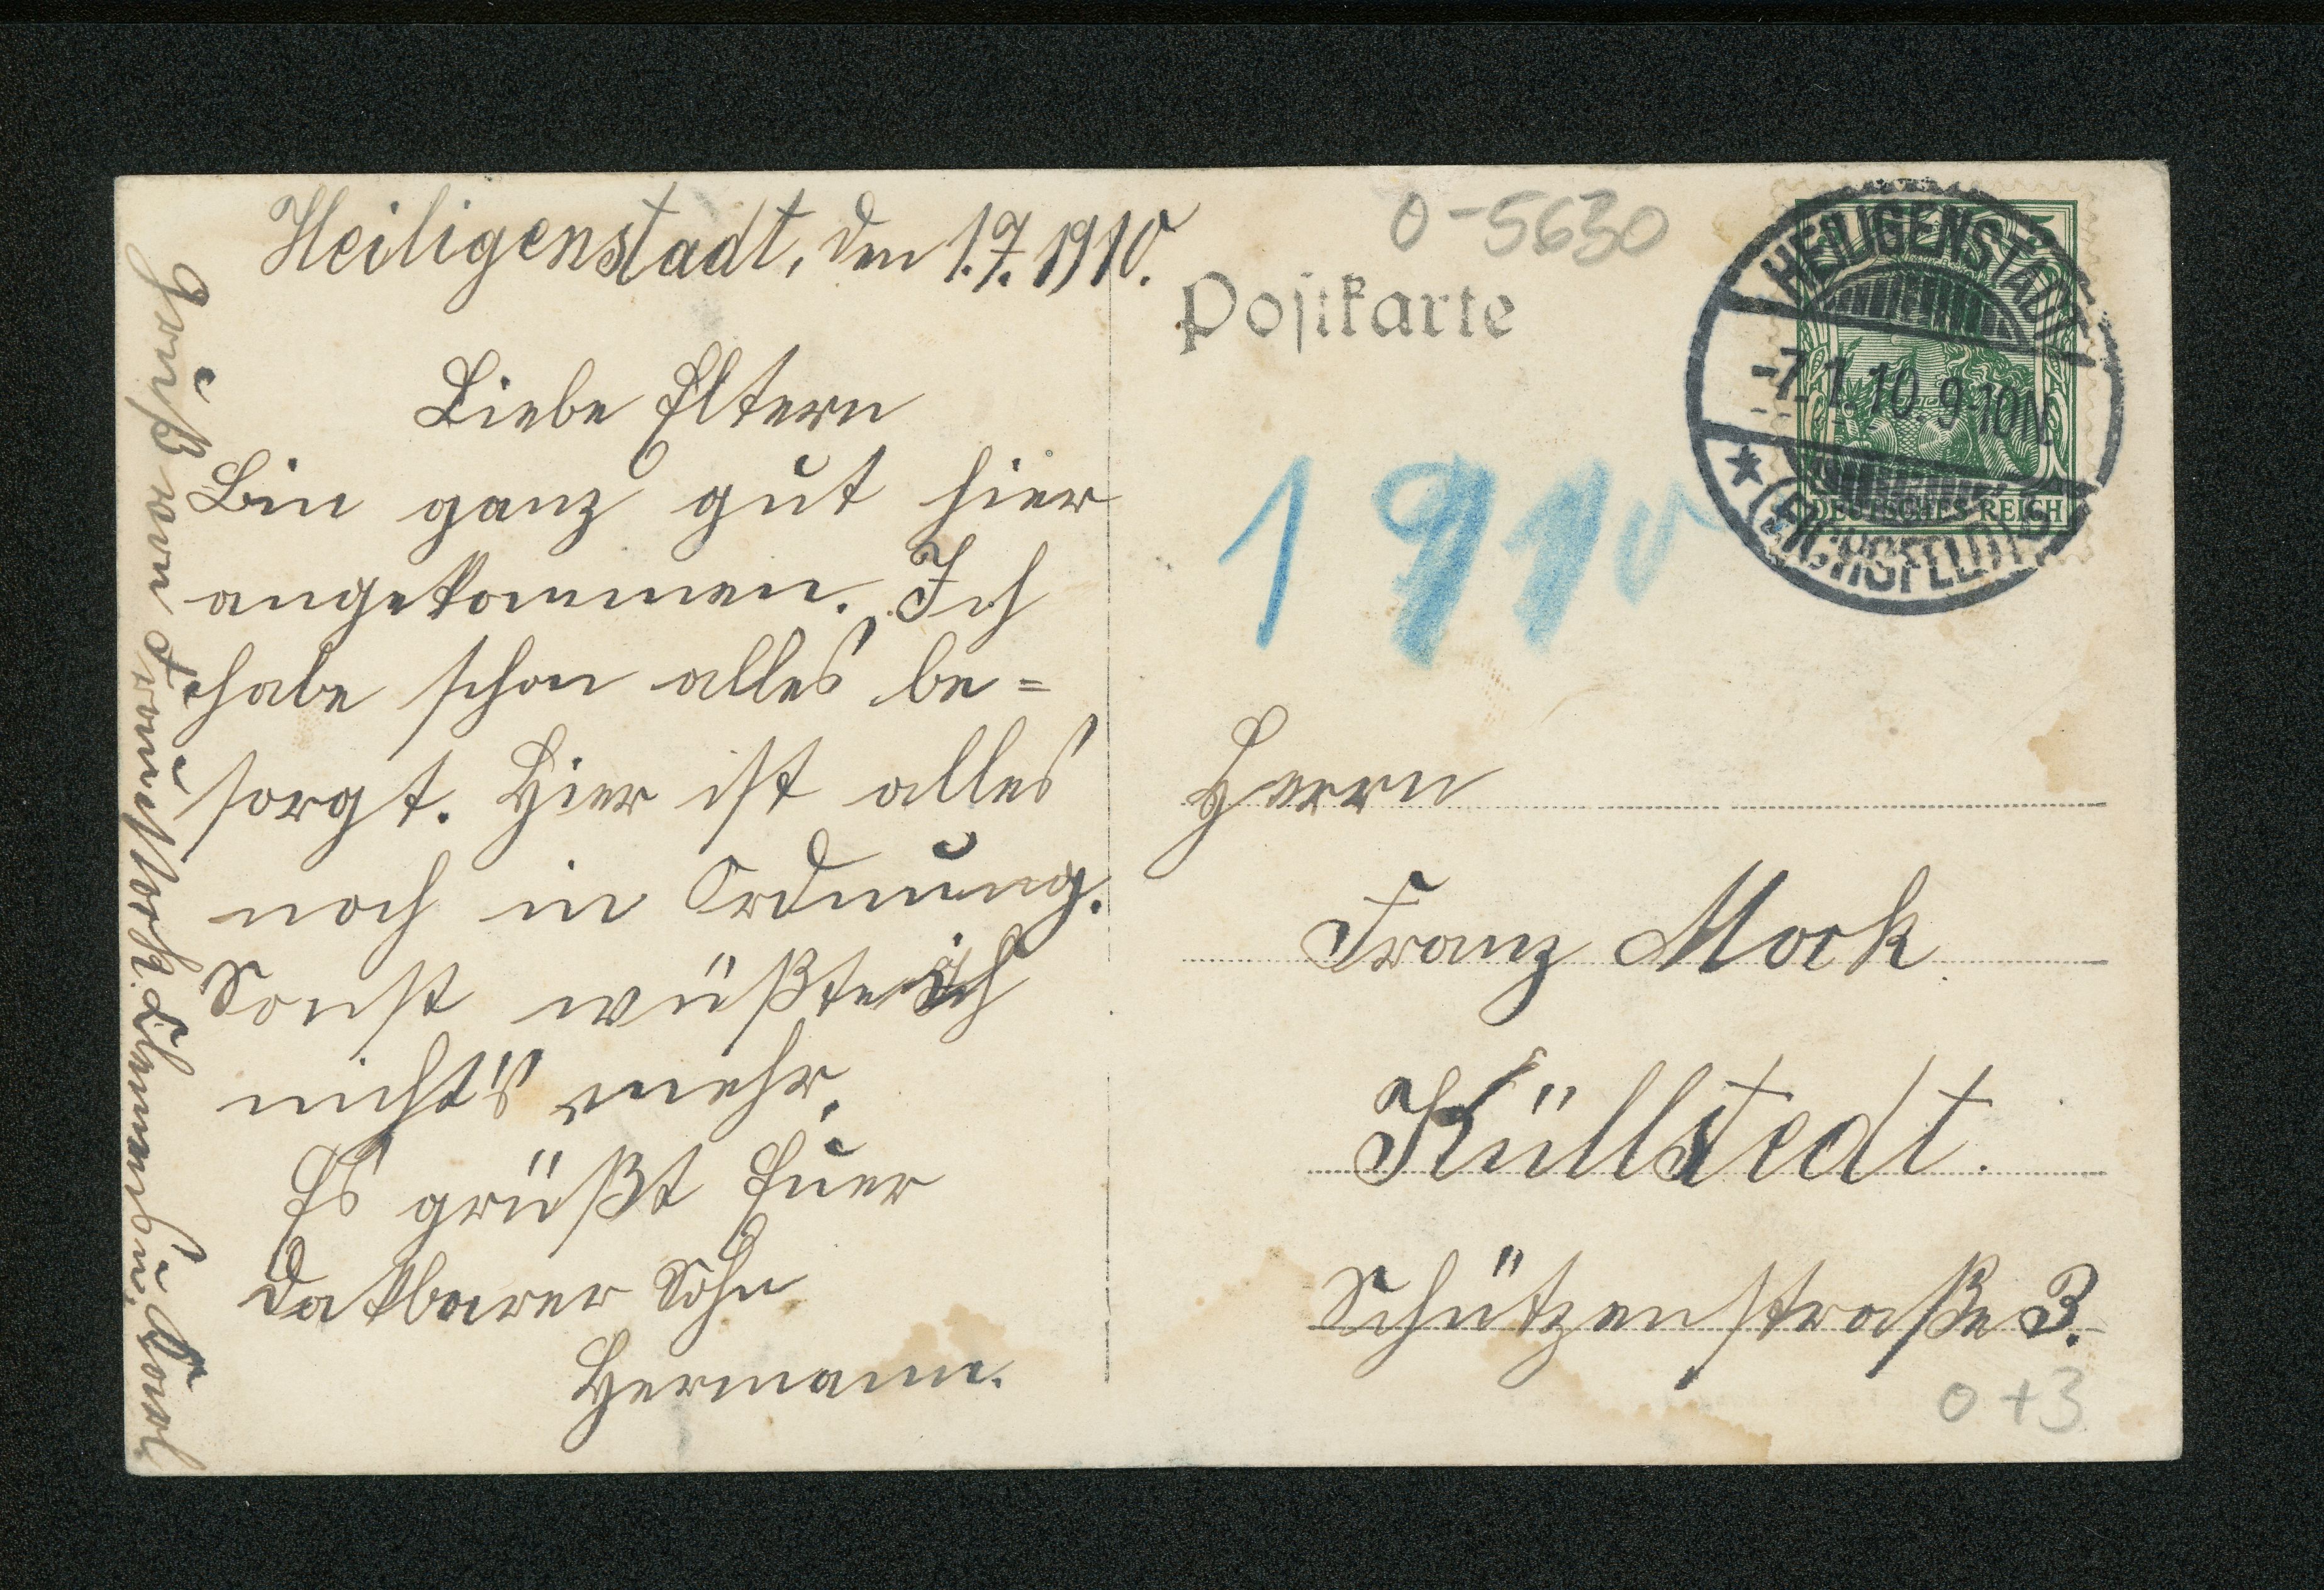 Heiligenstadt, den 1.7.1910.
Liebe Eltern
Bin ganz gut hier
angekommen. Ich
habe schon alles be=
sorgt. Hier ist alles
noch in Ordnung.
Sonst wüßte ich
nicht's mehr.
Es grüßt Euer
Dakbarer Sohn
Hermann.
Gruß an Franz Mock.
0-5630
Postkarte
HEILIGENSTADT
-7.1.10.9-10N.
(EICHSFELD)
DEUTSCHES REICH
1910
Herrn
Franz Mock
Küllstedt.
Schützenstraße 3.
0+3